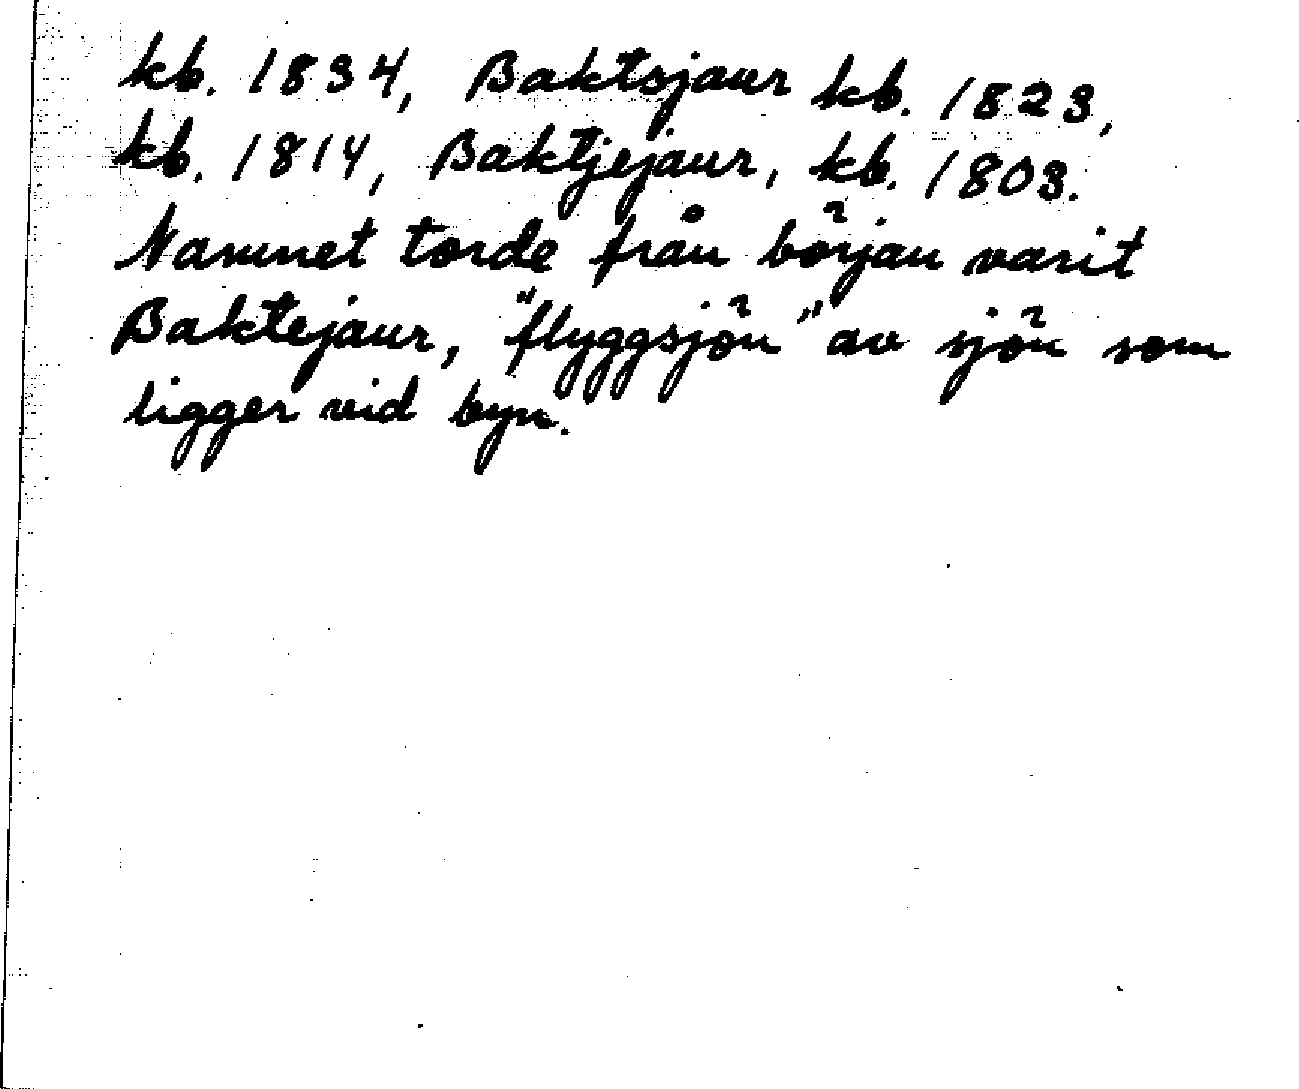 kb. 1834, Baktsjaur kb. 1823,
kb. 1814, Baktjejaur, kb. 1803.
Namnet torde från början varit
Baktejaur, "flyggsjön" av sjön som
ligger vid byn.